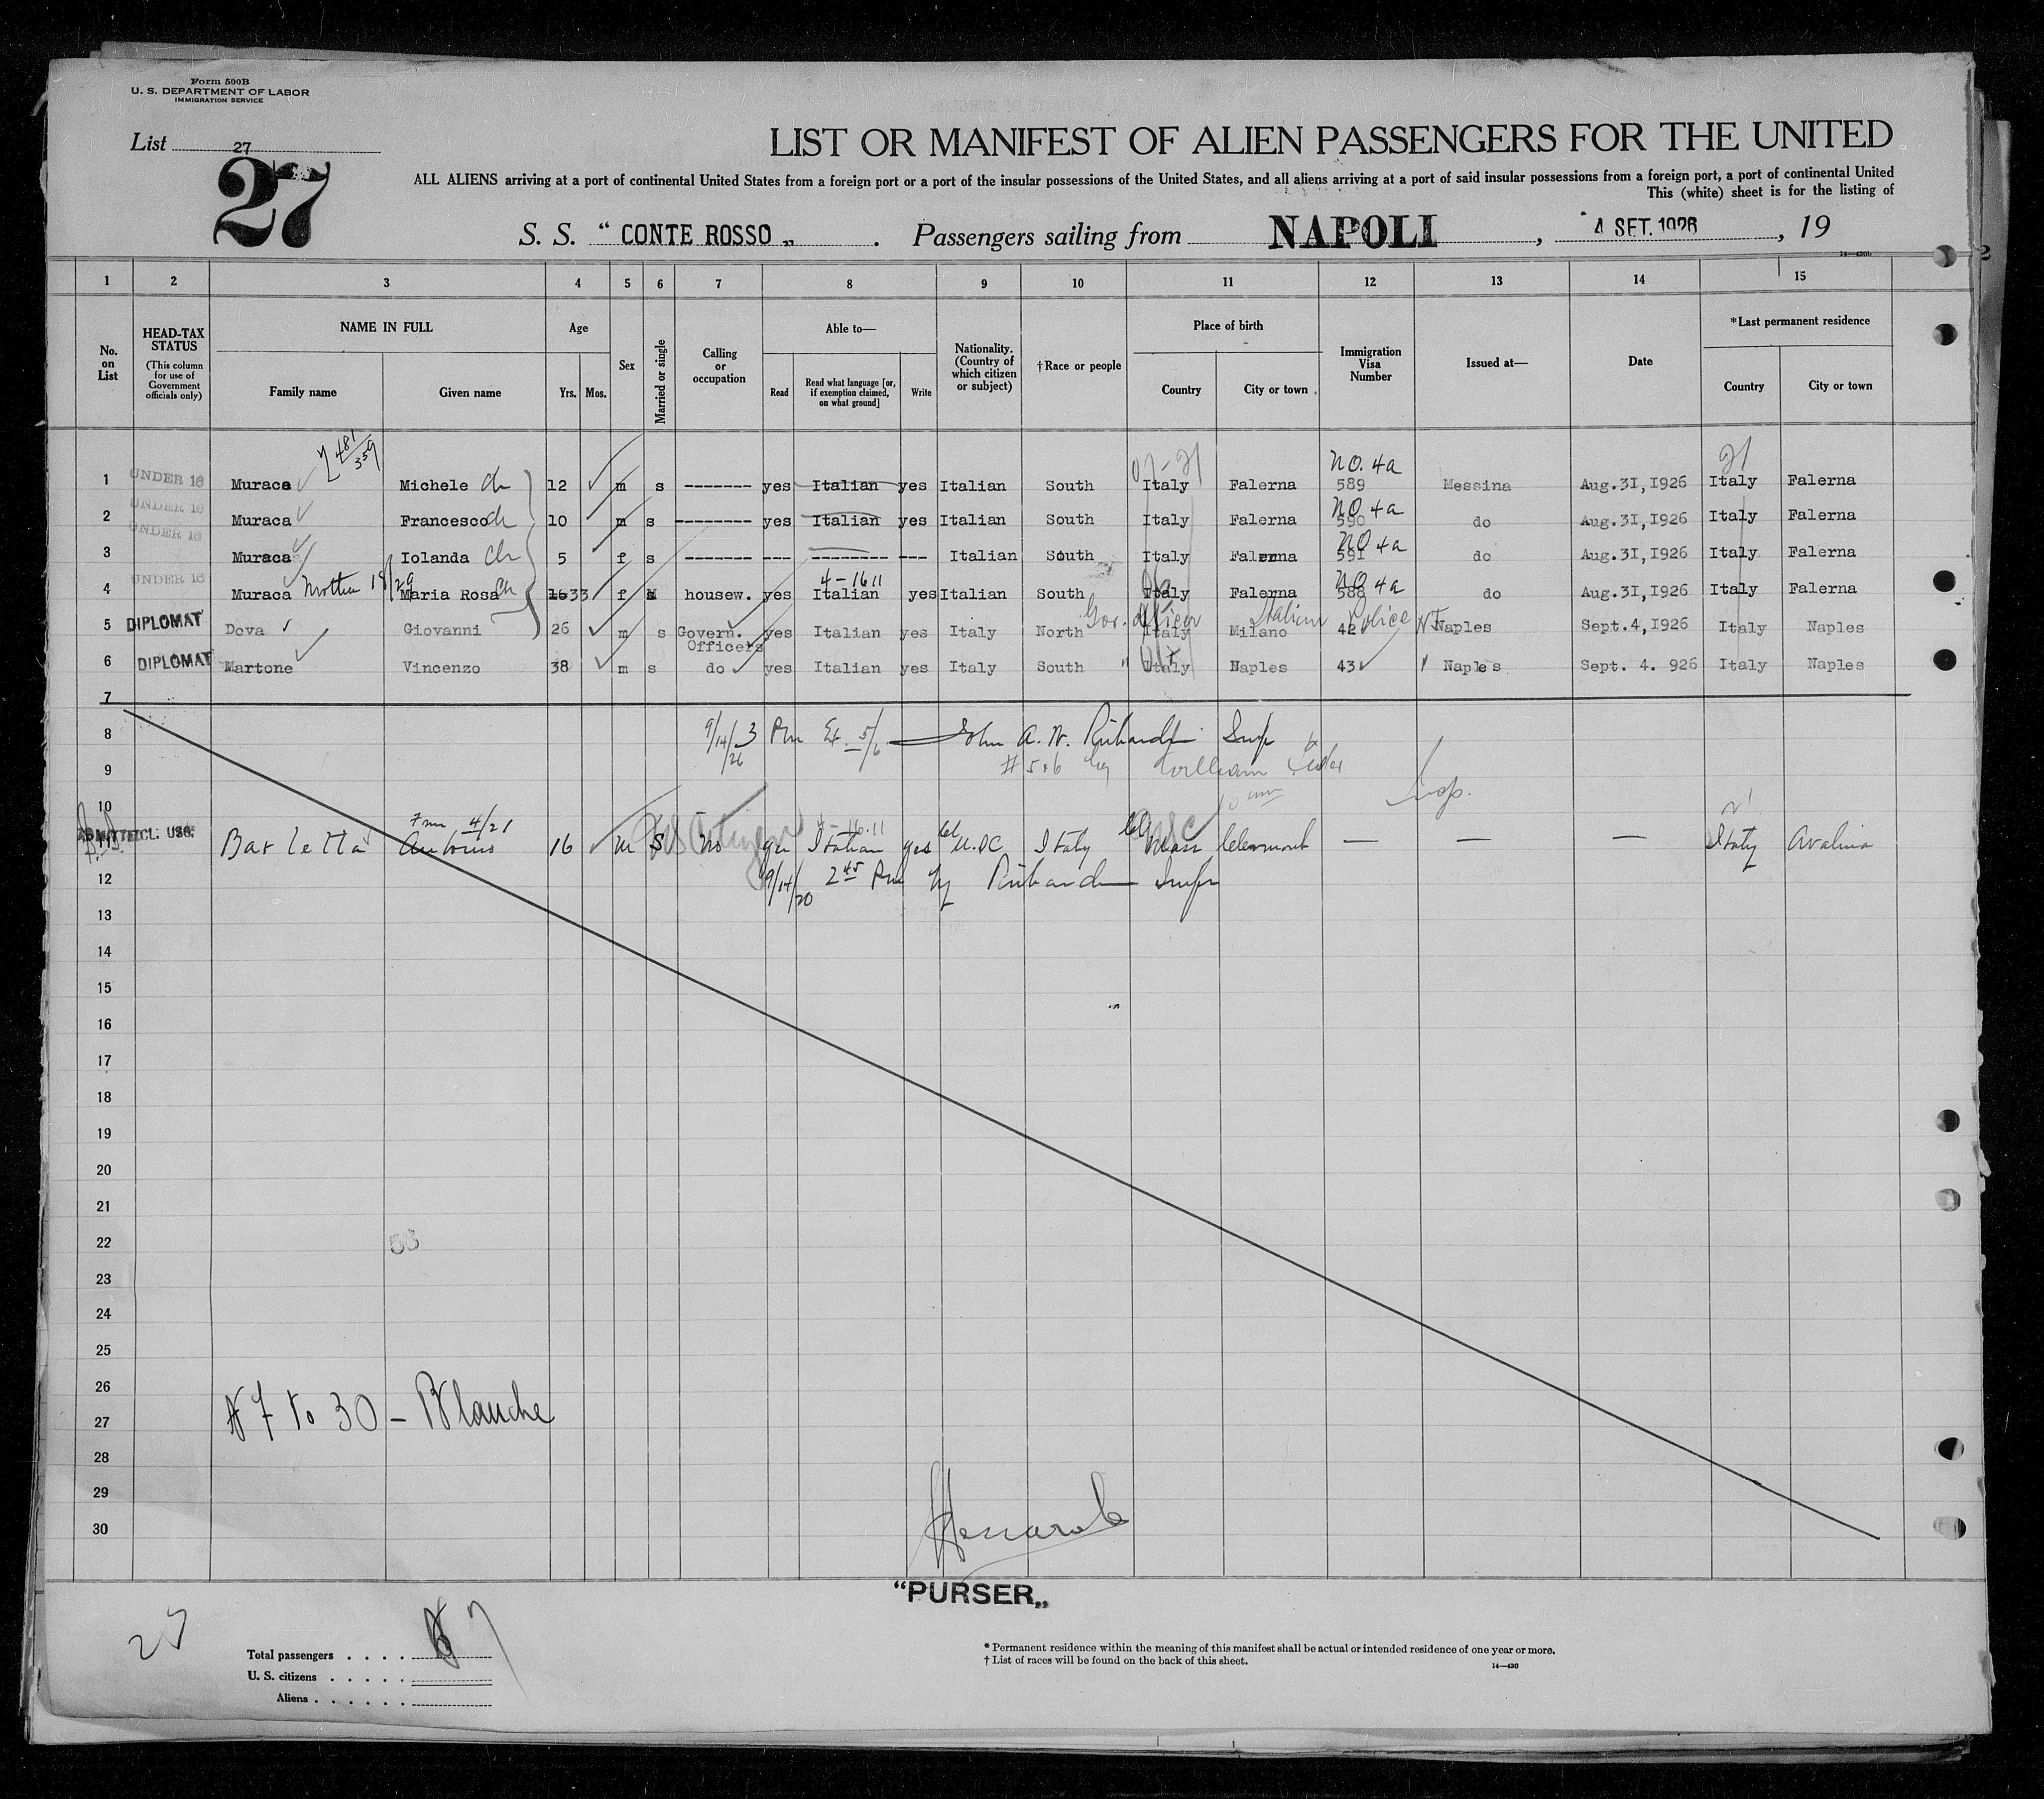 Form 500B
U. S. DEPARTMENT OF LABOR
IMMIGRATION SERVICE
List 27
27
LIST OR MANIFEST OF ALIEN PASSENGERS FOR THE UNITED
ALL ALIENS arriving at a port of continental United States from a foreign port or a port of the insular possessions of the United States, and all aliens arriving at a port of said insular possessions from a foreign port, a port of continental United
This (white) sheet is for the listing of
S. S. “ CONTE ROSSO „ . Passengers sailing from NAPOLI , 4 SET. 1926 , 19
14—430b
1 2 3 4 5 6 7 8 9 10 11 12 13 14 15
No. on List
HEAD-TAX STATUS
(This column for use of Government officials only)
NAME IN FULL
Family name Given name
Age
Yrs. Mos.
Sex
Married or single
Calling or occupation
Able to—
Read
Read what language [or, if exemption claimed, on what ground]
Write
Nationality. (Country of which citizen or subject)
†Race or people
Place of birth
Country City or town
Immigration Visa Number
Issued at—
Date
*Last permanent residence
Country City or town
481/359
NO. 4a
1 UNDER 16 Muraca Michele ch 12 m s ------- yes Italian yes Italian South Italy Falerna 589 Messina Aug.3I,I926 Italy Falerna
NO 4a
2 UNDER 16 Muraca Francesco ch 10 m s -------- yes Italian yes Italian South Italy Falerna 590 do Aug.3I,I926 Italy Falerna
NO 4a
3 UNDER 16 Muraca Iolanda ch 5 f s ------- --- -------- --- Italian South Italy Falerna 591 do Aug.3I,I926 Italy Falerna
4-16 11
NO 4a
4 UNDER 16 Muraca Mother 18/29 Maria Rosa ch 16 33 f housew. yes Italian yes Italian South Italy Falerna 588 do Aug.3I,I926 Italy Falerna
Gov. officer Italian Police
5 DIPLOMAT Dova Giovanni 26 m s Govern. Officers yes Italian yes Italy North Italy Milano 42 Naples Sept.4,I926 Italy Naples
6 DIPLOMAT Martone Vincenzo 38 m s do yes Italian yes Italy South " Italy Naples 43 Naples Sept. 4. 926 Italy Naples
7
8 9/14/26 3 Pm Ex 5/6 John A. W.
9 # 5 & 6 by William
Insp.
10
4/21
11 ADMITTED Bartletta Antonio 16 m S US Citizen no Italian yes U.S.C Italy Mass Clermont — — — Italy Avalino
12 9/14/20 2 45 Pm by
13
14
15
16
17
18
19
20
21
22 53
23
24
25
26
27 N 7 to 30 - Blanche
28
29
30
“PURSER„
27
Total passengers . . . . 7
U. S. citizens . . . . .
Aliens . . . . . .
* Permanent residence within the meaning of this manifest shall be actual or intended residence of one year or more.
† List of races will be found on the back of this sheet.
14—430